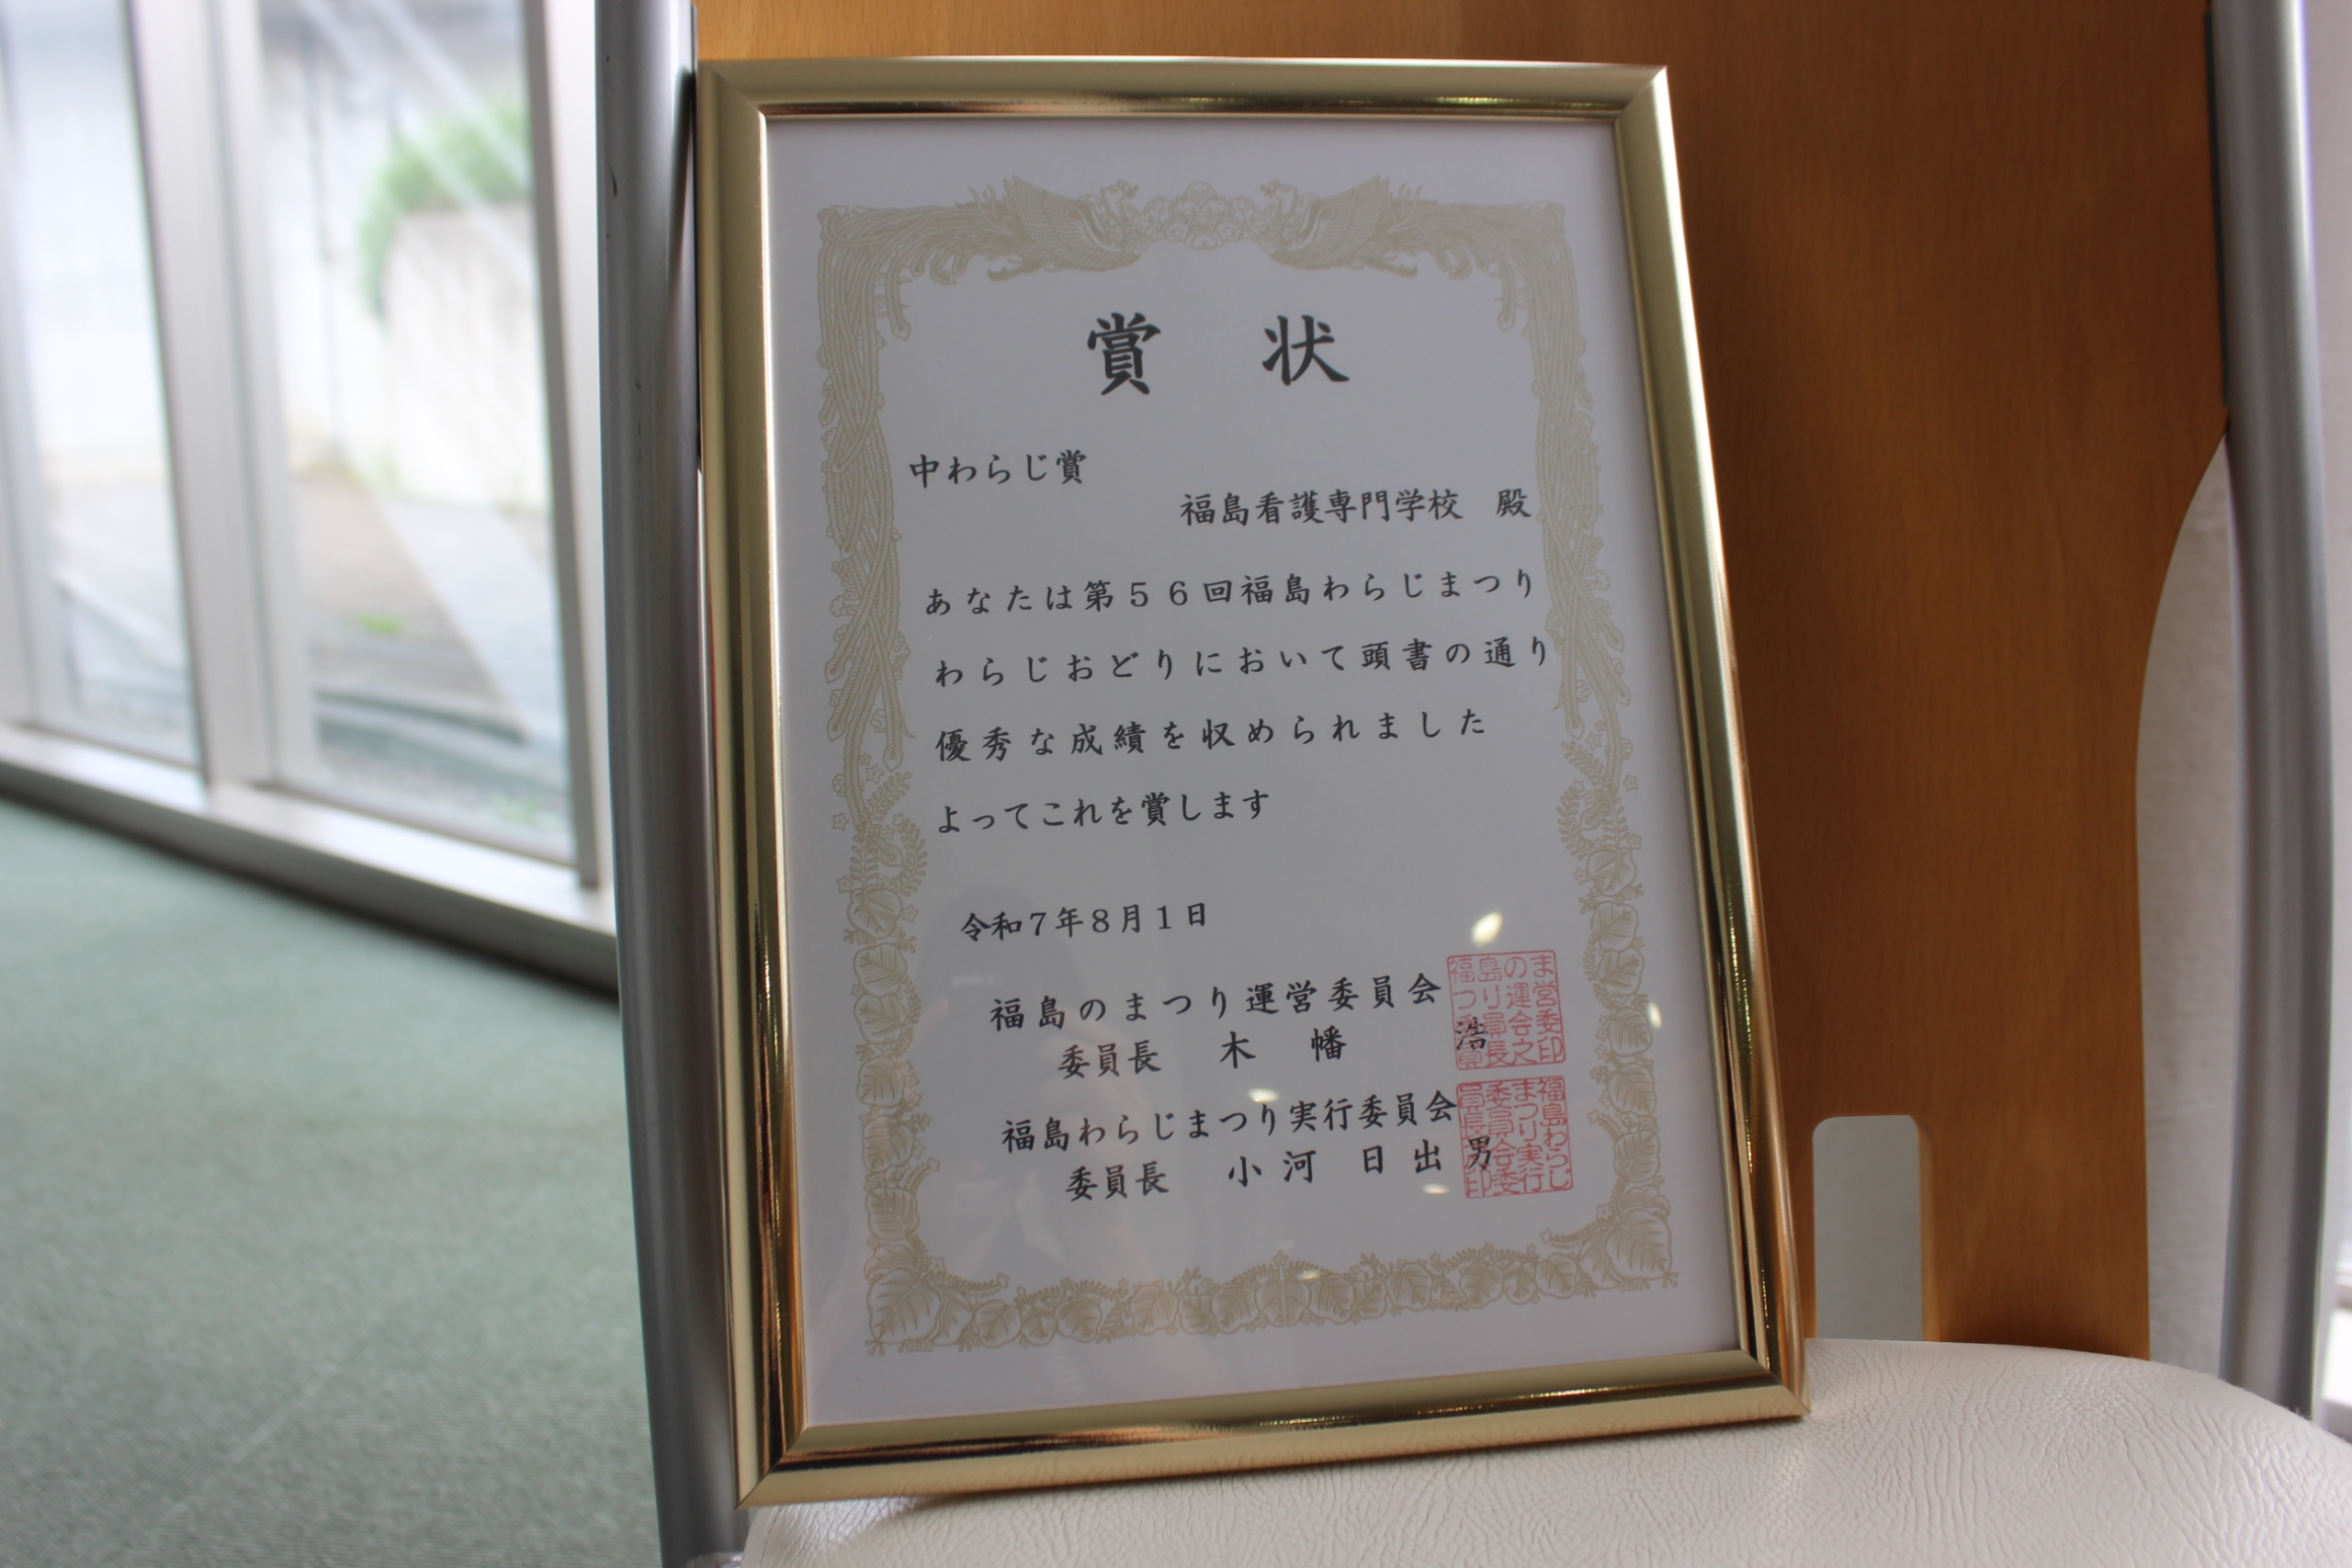 賞　状
中わらじ賞
福島看護専門学校　殿
あなたは第５６回福島わらじまつり
わらじおどりにおいて頭書の通り
優秀な成績を収められました
よってこれを賞します
令和７年８月１日
福島のまつり運営委員会
委員長　木　幡　　浩
福島わらじまつり実行委員会
委員長　小　河　日　出　男
福島のま
つり運営
委員会委
員長之印
福島わらじ
まつり実行
委員会委
員長之印